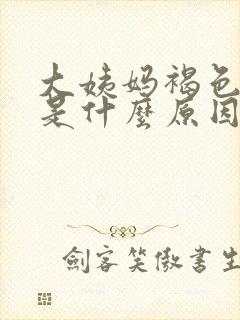 大姨妈褐色
是什麼原因
劍客笑傲書生